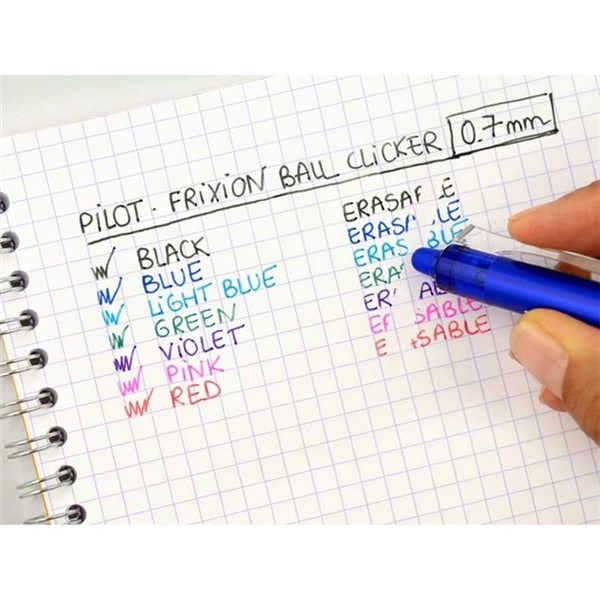 PiLOT - FRiXiON BALL CLiCKER 0.7mm
BLACK
BLUE
LiGHT BLUE
GREEN
ViOLET
PiNK
RED
ERASA E
ERAS LE
ERAS BLE
ERA
ER A
E SABLE
E SABLE